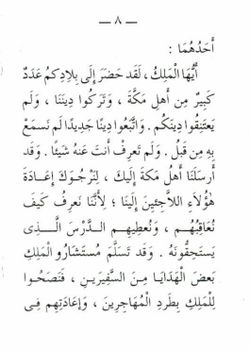 — ٨ —
أَحَدُهُمَا :
أَيُّهَا الْمَلِكُ ، لَقَد حَضَرَ إِلَى بِلَادِكُم عَدَدٌ
كَبِيرٌ مِن أَهلِ مَكَّةَ ، وَتَرَكُوا دِينَنَا ، وَلَم
يَعتَنِقُوا دِينَكُم . وَاتَّبَعُوا دِينًا جَدِيدًا لَم نَسمَع
بِهِ مِن قَبلُ . وَلَم تَعرِف أَنتَ عَنهُ شَيئًا . وَقَد
أَرسَلَنَا أَهلُ مَكَّةَ إِلَيكَ ، لِنَرجُوَكَ إِعَادَةَ
هَؤُلَاءِ اللَّاجِئِينَ إِلَينَا ؛ لِأَنَّنَا نَعرِفُ كَيفَ
نُعَاقِبُهُم ، وَنُعطِيهِم الدَّرسَ الَّـذِى
يَستَحِقُّونَهُ . وَقَد تَسَلَّمَ مُستَشَارُو الْمَلِكِ
بَعضَ الْهَدَايَا مِنَ السَّفِيرَينِ ، فَنَصَحُوا
لِلْمَلِكِ بِطَردِ الْمُهَاجِرِينَ ، وَإِعَادَتِهِم فِى